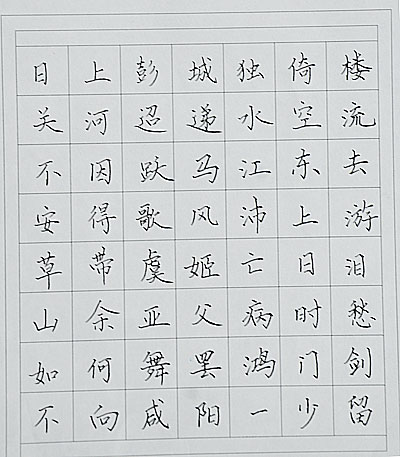 日上彭城独倚楼
关河迢递水空流
不因跃马江东去
安得歌风沛上游
草带虞姬亡日泪
山余亚父病时愁
如何舞罢鸿门剑
不向咸阳一少留